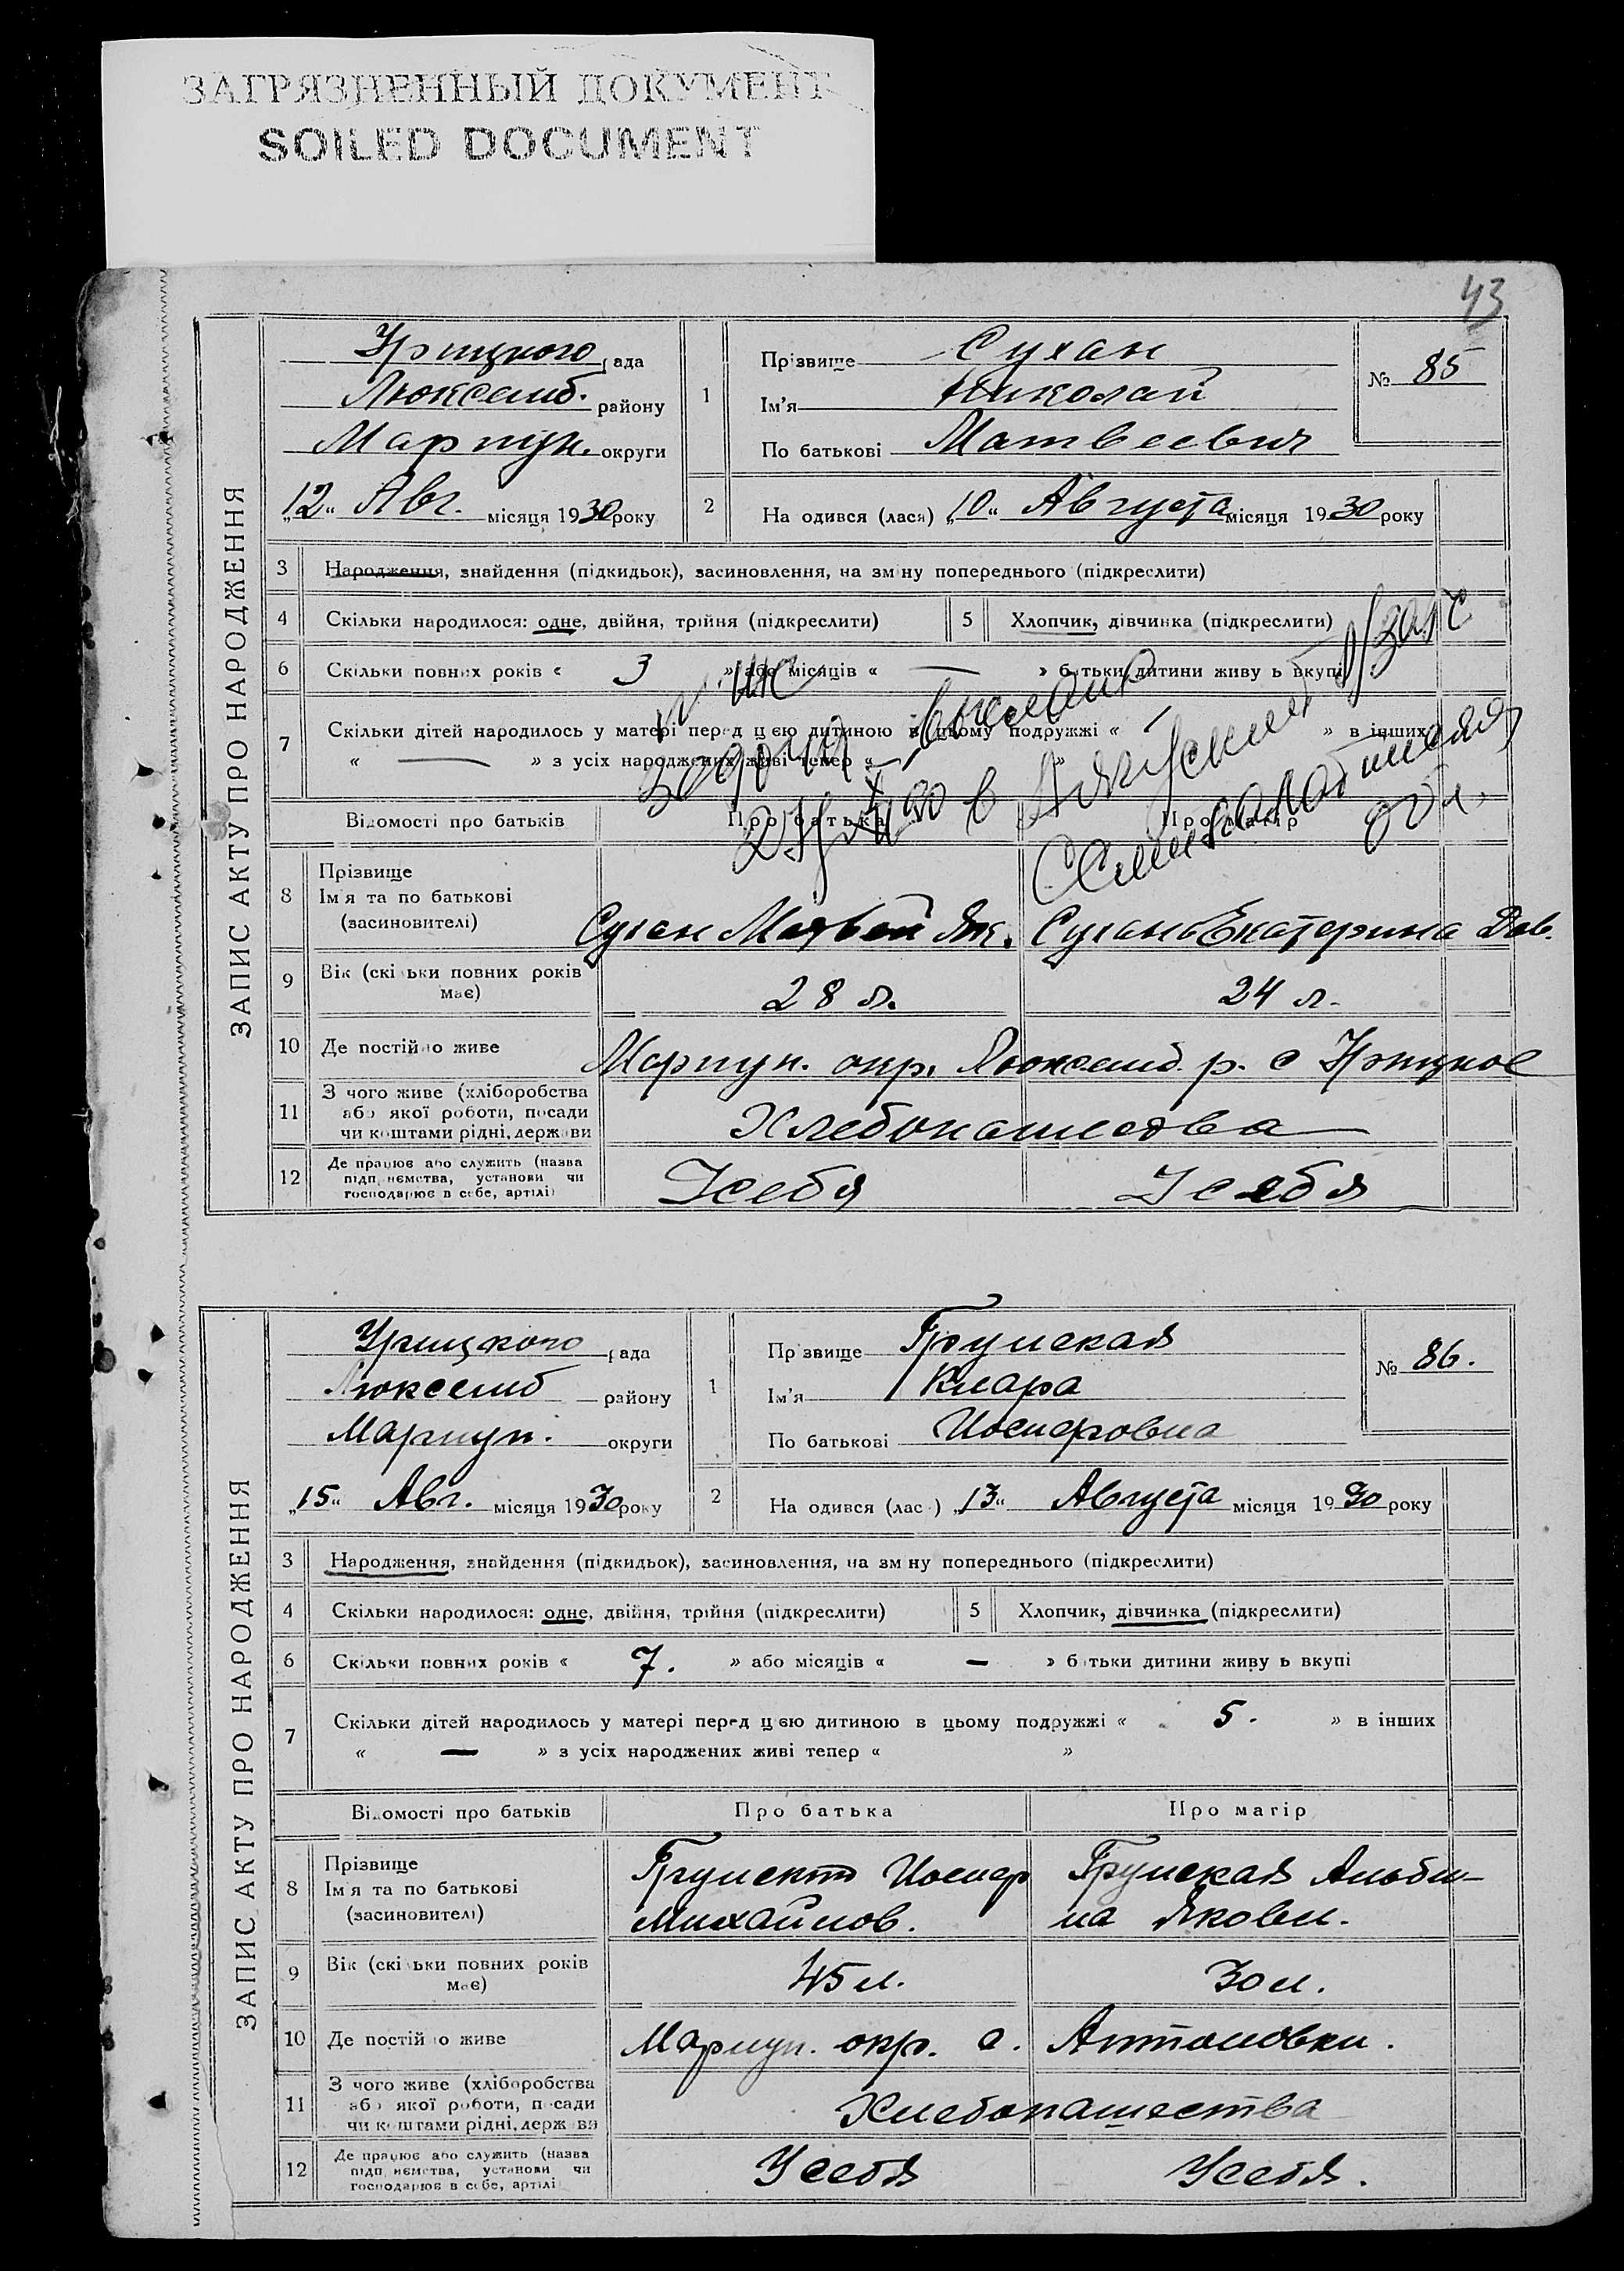 ЗАГРЯЗНЕННЫЙ ДОКУМЕНТ
SOILED DOCUMENT
43
ЗАПИС АКТУ ПРО НАРОДЖЕННЯ
Урицкого рада
Люксемб. району
Мариуп. округи
„12“ Авг. місяця 1930 року
1
Прізвище Сухан
Ім'я Николай
По батькові Матвеевич
№ 85
2
На одився (лася) „10“ Августа місяця 1930 року
3 Народження, знайдення (підкидьок), засиновлення, на зміну попереднього (підкреслити)
4 Скільки народилося: одне, двійня, трійня (підкреслити)
5 Хлопчик, дівчинка (підкреслити)
6 Скільки повних років « 3 » або місяців « — » батьки дитини живуть вкупі
7 Скільки дітей народилось у матері перед цією дитиною в цьому подружжі « — » в інших
« — » з усіх народжених живі тепер « »
в
обл.
Відомості про батьків Про батька Про матір
8 Прізвище
Ім'я та по батькові
(засиновителі)
Сухан Матвей Як. Сухань Екатерина Дав.
9 Вік (скільки повних років має) 28 л. 24 л.
10 Де постійно живе Мариуп. окр. Люксемб. р. с Урицкое
11 З чого живе (хліборобства
або якої роботи, посади
чи коштами рідні, держави
Хлебопашества
12 Де працює або служить (назва
підприємства, установи чи
господарює в себе, артілі)
У себя У себя
ЗАПИС АКТУ ПРО НАРОДЖЕННЯ
Урицкого рада
Люксемб району
Мариуп. округи
„15“ Авг. місяця 1930 року
1
Прізвище Грунская
Ім'я Клара
По батькові Иосифовна
№ 86.
2
На одився (лас ) „13“ Августа місяця 1930 року
3 Народження, знайдення (підкидьок), засиновлення, на зміну попереднього (підкреслити)
4 Скільки народилося: одне, двійня, трійня (підкреслити)
5 Хлопчик, дівчинка (підкреслити)
6 Скільки повних років « 7. » або місяців « — » батьки дитини живуть вкупі
7 Скільки дітей народилось у матері перед цією дитиною в цьому подружжі « 5. » в інших
« — » з усіх народжених живі тепер « »
Відомості про батьків Про батька Про матір
8 Прізвище
Ім'я та по батькові
(засиновителі)
Иосиф Грунская Альби-
Михайлов. на Яковл.
9 Вік (скільки повних років має) 45 л. 30 л.
10 Де постійно живе Мариуп. окр. с. Антоновки.
11 З чого живе (хліборобства
або якої роботи, посади
чи коштами рідні, держави
Хлебопашества
12 Де працює або служить (назва
підприємства, установи чи
господарює в себе, артілі
У себя У себя.